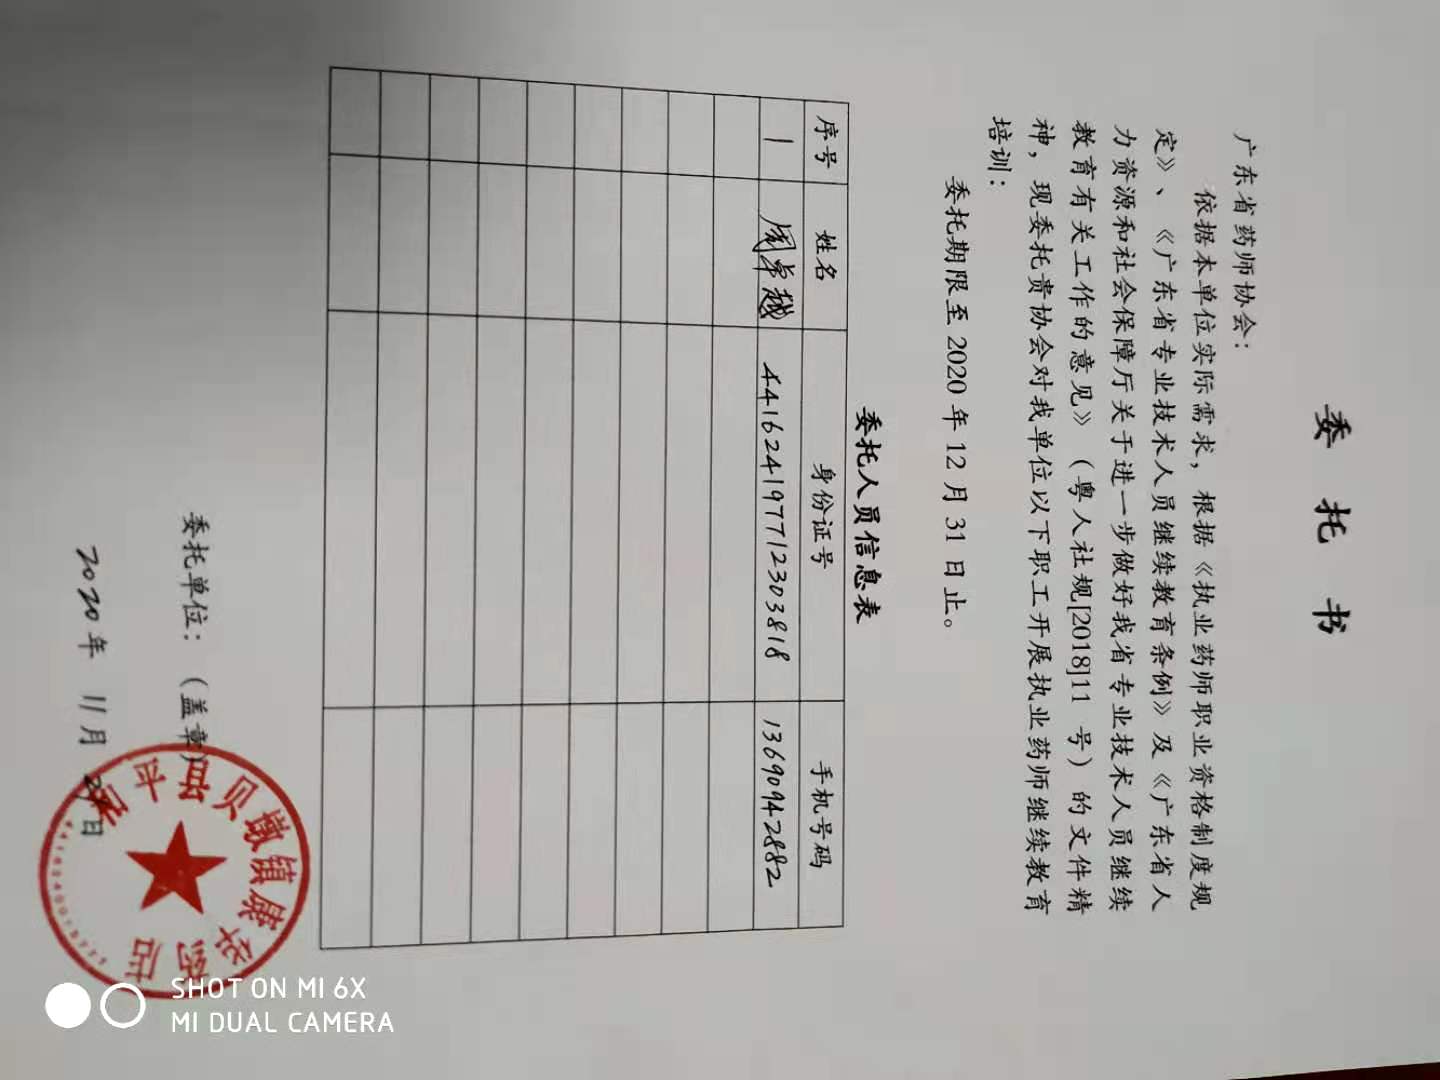 委托书
广东省药师协会：
依据本单位实际需求，根据《执业药师职业资格制度规
定》、《广东省专业技术人员继续教育条例》及《广东省人
力资源和社会保障厅关于进一步做好我省专业技术人员继续
教育有关工作的意见》（粤人社规[2018]11 号）的文件精
神，现委托贵协会对我单位以下职工开展执业药师继续教育
培训：
委托期限至 2020 年 12 月 31 日止。
委托人员信息表
序号 姓名 身份证号 手机号码
1 周卓越 441624197712303818 13690942882
委托单位：（盖章）
和平县贝墩镇康华药店
2020年 11月 日
SHOT ON MI 6X
MI DUAL CAMERA